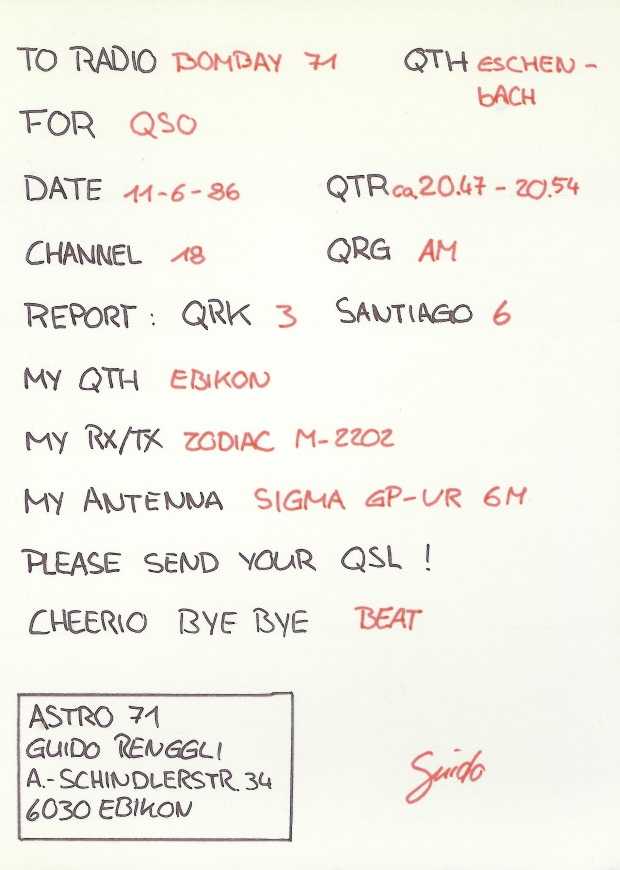 TO RADIO BOMBAY 71 QTH ESCHEN-
BACH
FOR QSO
DATE 11-6-86 QTR ca. 20.47 - 20.54
CHANNEL 18 QRG AM
REPORT: QRK 3 SANTIAGO 6
MY QTH EBIKON
MY RX/TX ZODIAC M-2202
MY ANTENNA SIGMA GP-UR 6M
PLEASE SEND YOUR QSL !
CHEERIO BYE BYE BEAT
ASTRO 71
GUIDO RENGGLI
A.-SCHINDLERSTR. 34
6030 EBIKON
Guido